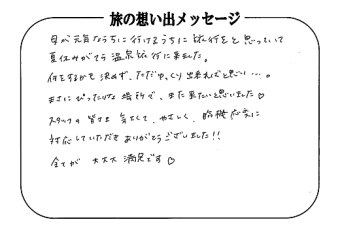 旅の想い出メッセージ
母が元気なうちに行けるうちに旅行をと思っていて
夏休みがてら温泉旅行に来ました。
何をするかを決めず、ただゆっくり出来ればと思い…。
まさにぴったりな場所で、また来たいと思いました♡
スタッフの皆さま気さくで、やさしく、臨機応変に
対応していただきありがとうございました!!
全てが 大大大 満足です♡